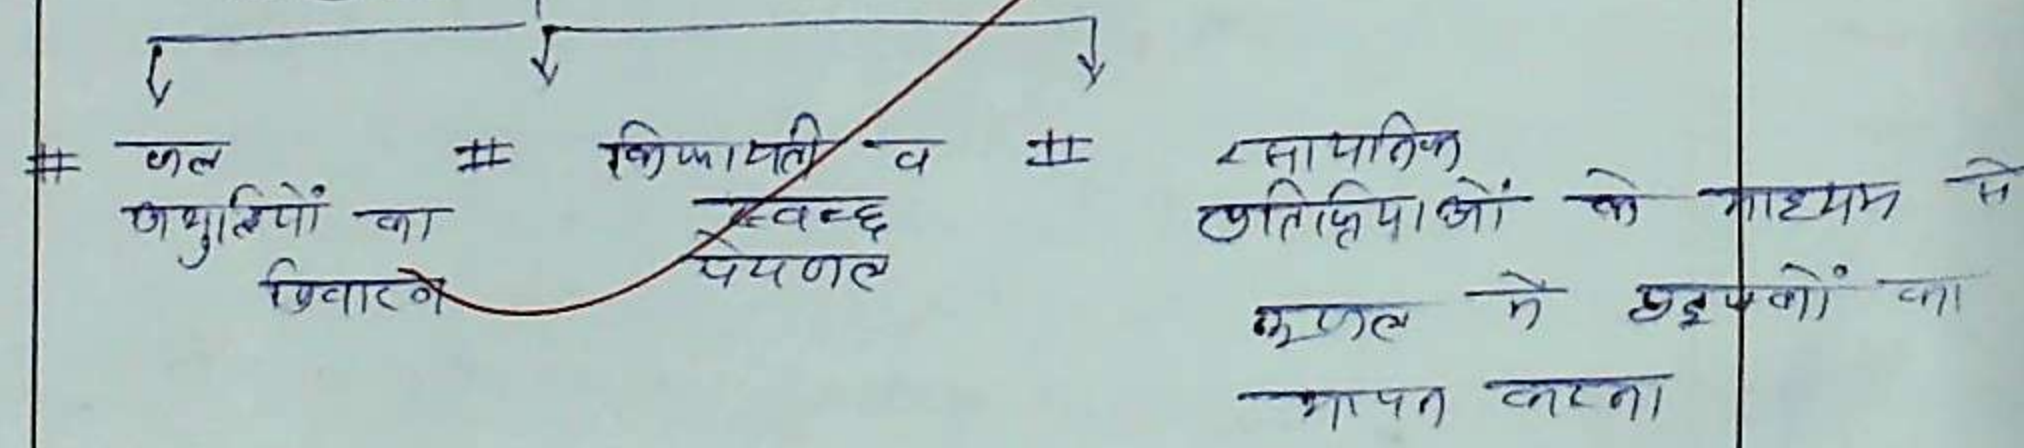 # जल
अशुद्धियों का
निवारण
# किफायती व
स्वच्छ
पेयजल
# रसायनिक
प्रतिक्रियाओं के माध्यम से
भूजल में प्रदूषकों का
मापन करना